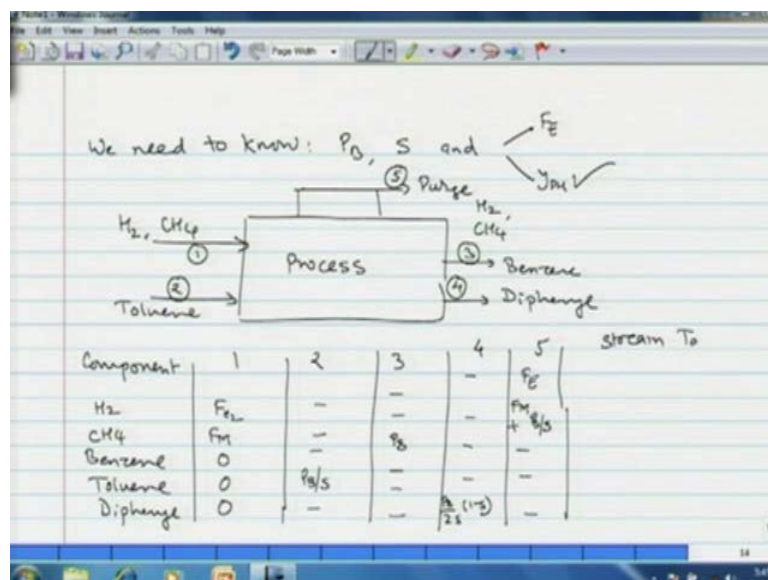 Note1 - Windows Journal
File Edit View Insert Actions Tools Help
Page Width
We need to know: P_B, S and F_E
y_PH ✓
5 Purge
H2, CH4
1
H2,
CH4
Process
3 Benzene
2
Toluene
4 Diphenye
Component 1 2 3 4 5 stream To
H2 F_E2 - - - F_E
CH4 F_M - - - F_M + P_B/S
Benzene 0 - P_B - -
Toluene 0 P_B/S - - -
Diphenye 0 - - P_B/2S (1-S) -
14